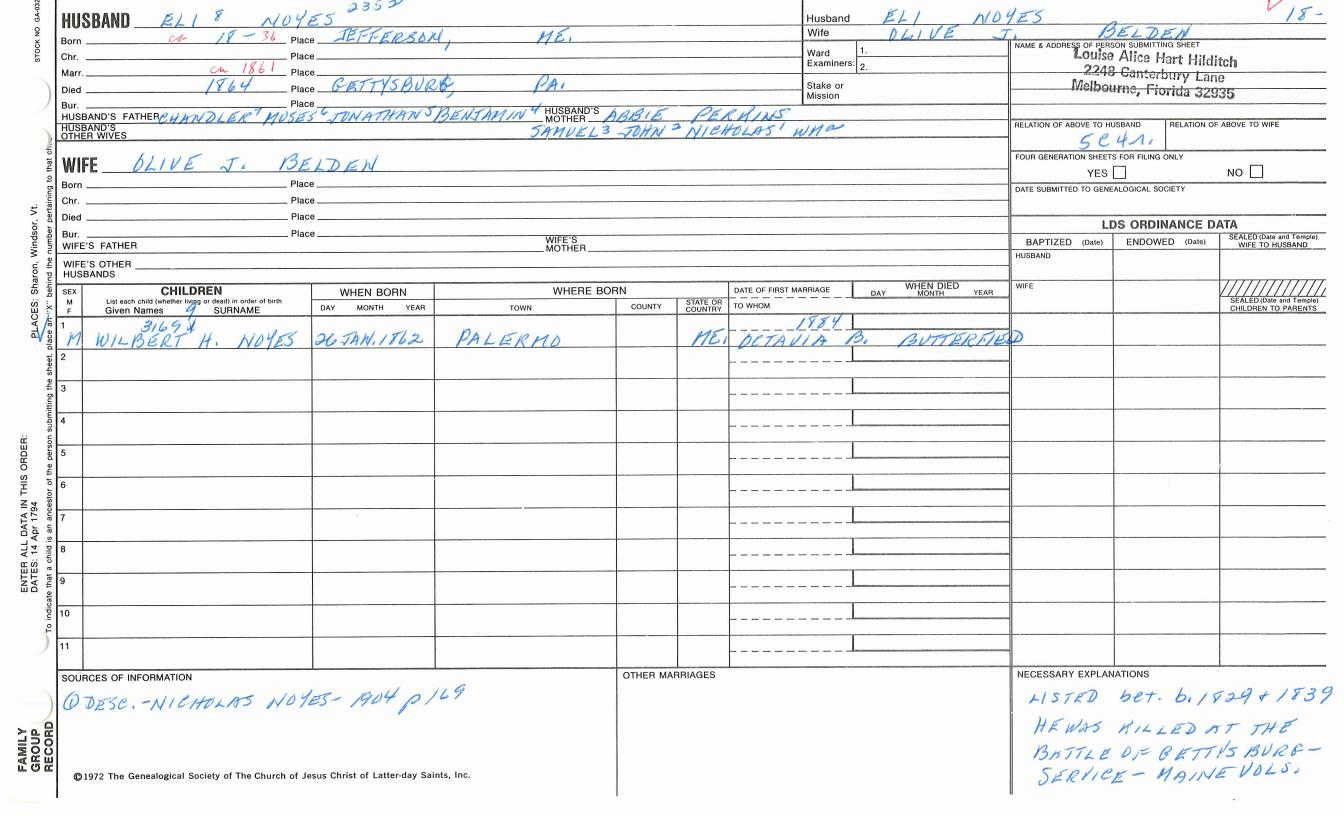 STOCK NO GA-032
2352
HUSBAND ELI 8 NOYES
Born ca 18-36 Place JEFFERSON, ME.
Chr. Place
Marr. ca 1861 Place
Died 1864 Place GETTYSBURG, PA.
Bur. Place
HUSBAND'S FATHER CHANDLER 7 MOSES 6 JONATHAN 5 BENJAMIN 4 HUSBAND'S MOTHER ABBIE PERKINS
HUSBAND'S OTHER WIVES SAMUEL 3 JOHN 2 NICHOLAS 1 WM a
Husband ELI NOYES 18-
Wife OLIVE J. BELDEN
Ward Examiners: 1.
2.
Stake or Mission
NAME & ADDRESS OF PERSON SUBMITTING SHEET
Louise Alice Hart Hilditch
2248 Canterbury Lane
Melbourne, Florida 32935
RELATION OF ABOVE TO HUSBAND RELATION OF ABOVE TO WIFE
5C4r.
FOUR GENERATION SHEETS FOR FILING ONLY
YES NO
DATE SUBMITTED TO GENEALOGICAL SOCIETY
WIFE OLIVE J. BELDEN
Born Place
Chr. Place
Died Place
Bur. Place
WIFE'S FATHER WIFE'S MOTHER
WIFE'S OTHER HUSBANDS
LDS ORDINANCE DATA
BAPTIZED (Date) ENDOWED (Date) SEALED (Date and Temple) WIFE TO HUSBAND
HUSBAND
WIFE
SEALED (Date and Temple) CHILDREN TO PARENTS
SEX M F CHILDREN WHEN BORN WHERE BORN DATE OF FIRST MARRIAGE WHEN DIED
List each child (whether living or dead) in order of birth
Given Names SURNAME DAY MONTH YEAR TOWN COUNTY STATE OR COUNTRY TO WHOM DAY MONTH YEAR
1 3169 9 1884
M WILBERT H. NOYES 26 JAN. 1862 PALERMO ME. OCTAVIA B. BUTTERFIELD
2
3
4
5
6
7
8
9
10
11
SOURCES OF INFORMATION
① DESC.-NICHOLAS NOYES-1904 p169
OTHER MARRIAGES
NECESSARY EXPLANATIONS
LISTED bet. b. 1829 + 1839
HE WAS KILLED AT THE
BATTLE OF GETTYSBURG-
SERVICE-MAINE VOLS.
©1972 The Genealogical Society of The Church of Jesus Christ of Latter-day Saints, Inc.
FAMILY GROUP RECORD
ENTER ALL DATA IN THIS ORDER:
DATES: 14 Apr 1794
PLACES: Sharon, Windsor, Vt.
To indicate that a child is an ancestor of the person submitting the sheet, place an "X" behind the number pertaining to that